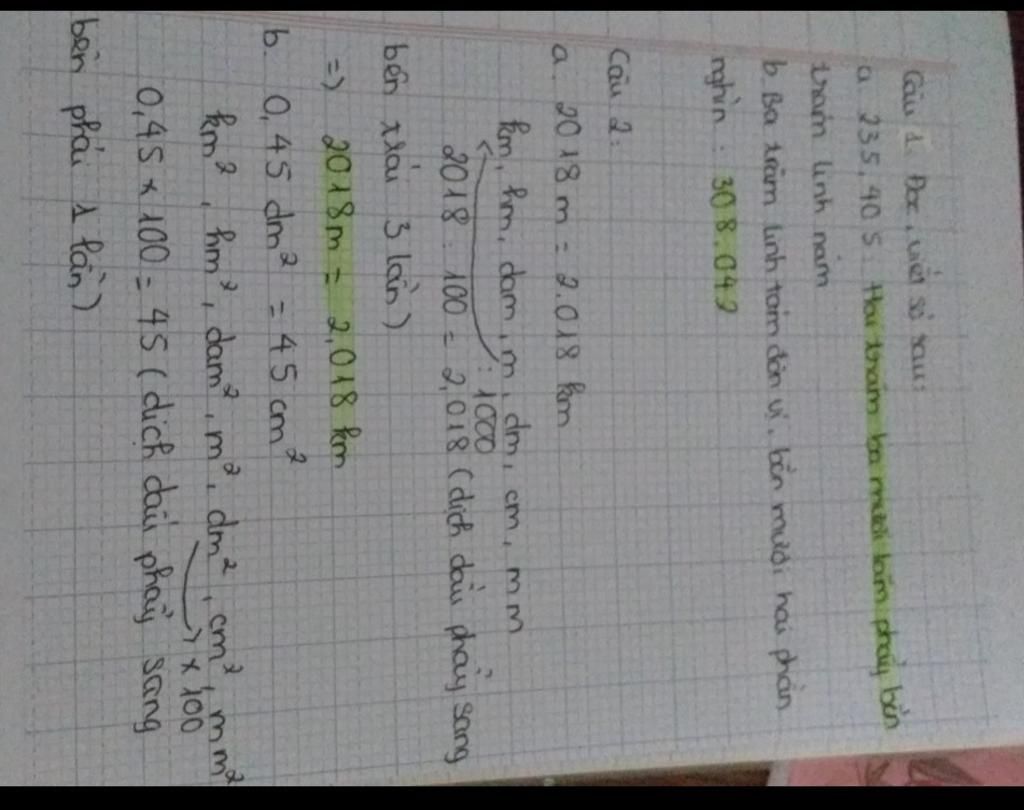 Câu 1. Đọc, viết số sau:
a. 235,405: Hai trăm ba mươi lăm phẩy bốn
trăm linh năm
b Ba trăm linh tám đơn vị, bốn mươi hai phần
nghìn: 308.042
Câu 2:
a. 2018m = 2.018 km
km, hm, dam, m, dm, cm, mm
: 1000
2018 : 100 = 2,018 (dịch dấu phẩy sang
bên trái 3 lần)
=> 2018m = 2,018 km
b. 0,45 dm² = 45 cm²
km², hm², dam², m², dm², cm², mm²
x 100
0,45 x 100 = 45 (dịch dấu phẩy sang
bên phải 1 lần)